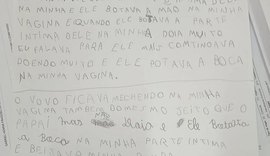 NA MINHA E ELE BOTAVA A MÃO NA MINHA
VAGINA E QUANDO ELE BOTAVA A PARTE
INTIMA DELE NA MINHA DOIA MUITO
EU FALAVA PARA ELE MAIS COMTINOAVA
DOENDO MUITO E ELE BOTAVA A BOCA
NA MINHA VAGINA.
O VOVO FICAVA MECHENDO NA MINHA
VAGINA TAMBEM DO MESMO JEITO QUE O
PAPAI mas doia e Ele Botava
a Boca NA MINHA PARTE INTIMA